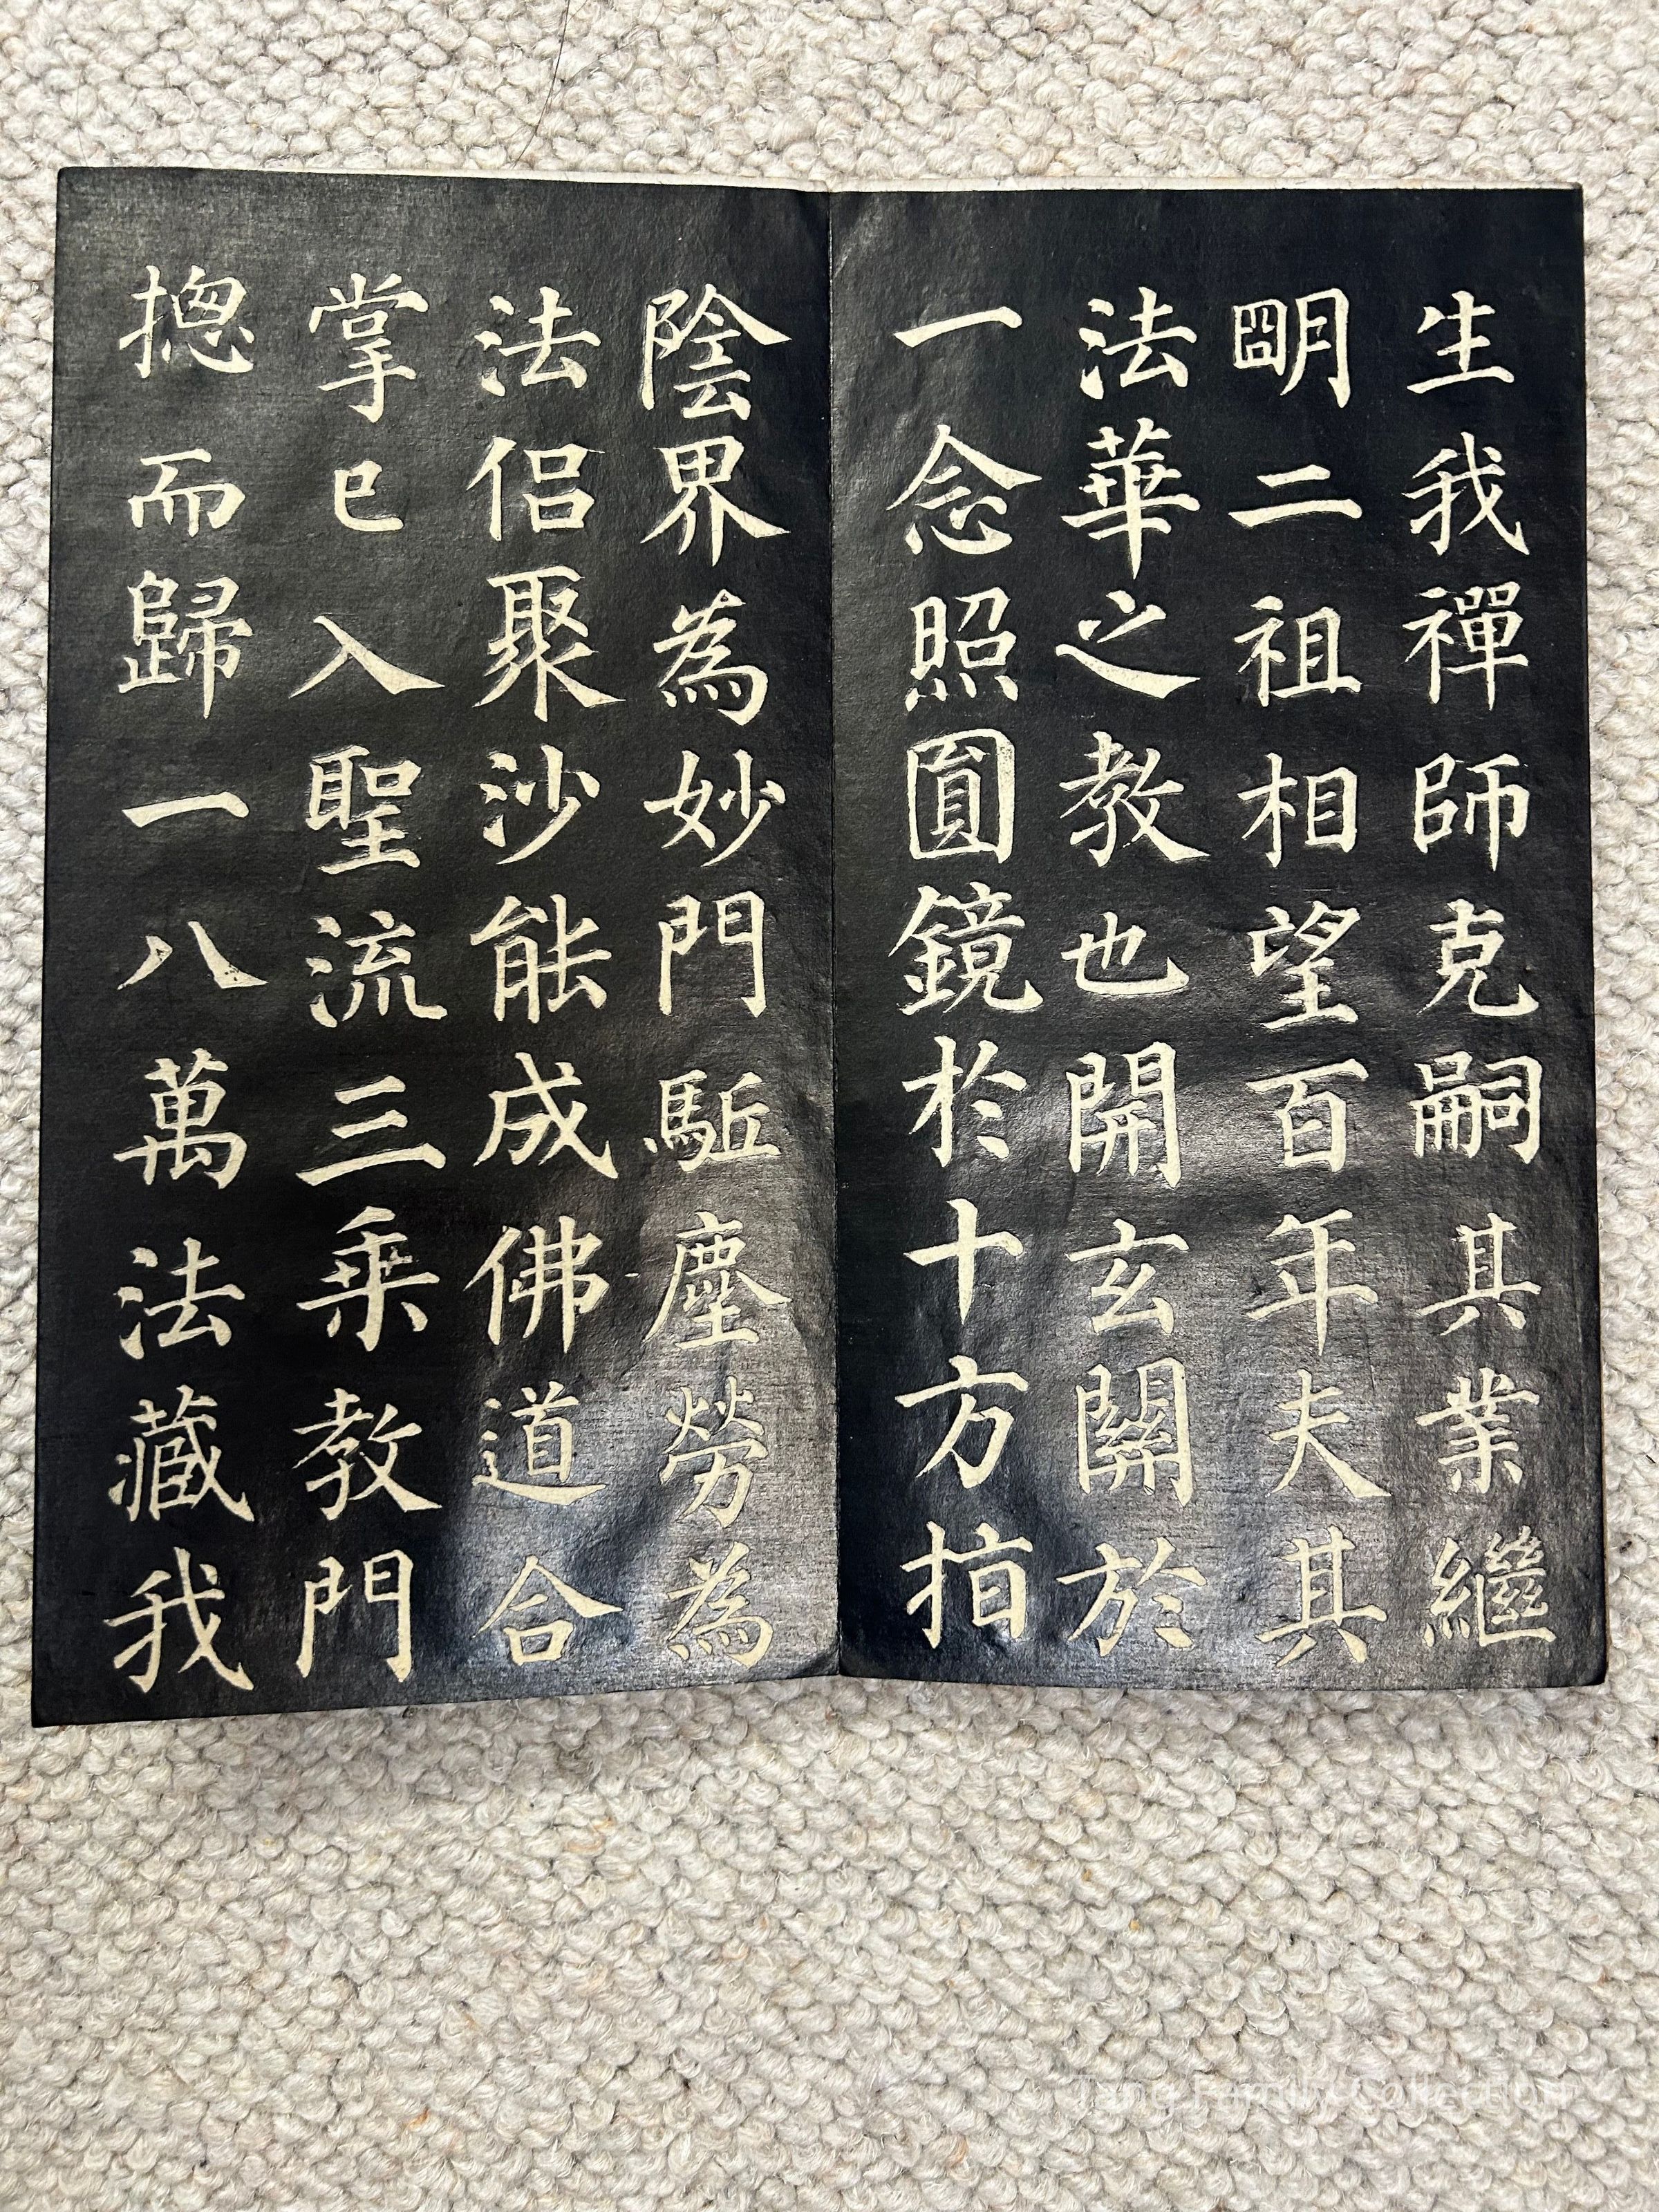 生我禪師克嗣其業繼
明二祖相望百年夫其
法華之教也開玄關於
一念照圓鏡於十方指
陰界為妙門駈塵勞為
法侶聚沙能成佛道合
掌已入聖流三乘教門
揔而歸一八萬法藏我
Tang Family Collection